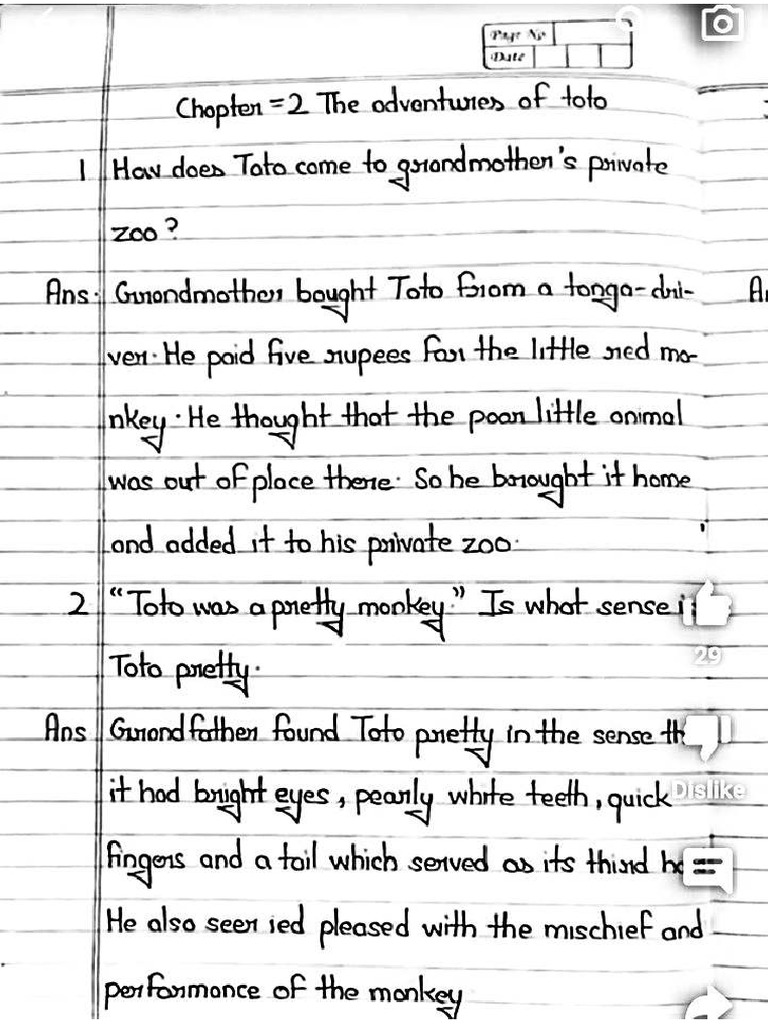 Page No
Date
Chapter =2 The adventures of toto
1 How does Toto come to grandmother's private
zoo?
Ans. Grandmother bought Toto from a tonga-dri-
ver. He paid five rupees for the little red mo-
nkey. He thought that the poor little animal
was out of place there. So he brought it home
and added it to his private zoo.
2 "Toto was a pretty monkey." Is what sense
Toto pretty.
29
Ans Grandfather found Toto pretty in the sense
it had bright eyes, pearly white teeth, quick
Dislike
fingers and a tail which served as its third
He also seer ied pleased with the mischief and
performance of the monkey